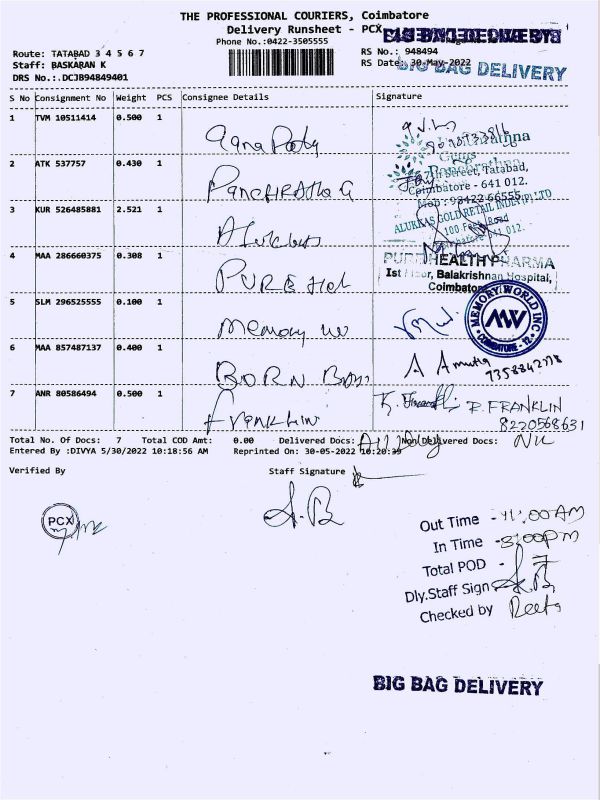 THE PROFESSIONAL COURIERS, Coimbatore
Delivery Runsheet - PCX
Phone No.:0422-3505555
BIG BAG DELIVERY
Route: TATABAD 3 4 5 6 7
Staff: BASKARAN K
DRS No.:.DCJB94849401
RS No.: 948494
RS Date: 30-May-2022
BIG BAG DELIVERY
S No Consignment No Weight PCS Consignee Details Signature
1 TVM 10511414 0.500 1
2 ATK 537757 0.430 1
Street, Tatabad,
Coimbatore - 641 012.
Mob : 98422 66555
3 KUR 526485881 2.521 1
ALUKKAS GOLD RETAIL INDIA (P) LTD
100 Feet Road
4 MAA 286660375 0.308 1 PURE Hel
PURE HEALTH PHARMA
Ist Floor, Balakrishnan Hospital,
Coimbatore
5 SLM 296525555 0.100 1 memory wo
MEMORY WORLD INC
MW
COIMBATORE - 12
6 MAA 857487137 0.400 1 BORN BABY
A Amutha
7358842778
7 ANR 80586494 0.500 1 Franklin
R. FRANKLIN
8220568631
Total No. Of Docs: 7 Total COD Amt: 0.00 Delivered Docs: Non Delivered Docs: Nil
Entered By :DIVYA 5/30/2022 10:18:56 AM Reprinted On: 30-05-2022 10:20:39
Verified By Staff Signature
PCX
Out Time - 11:00 AM
In Time - 3:00 PM
Total POD - 7
Dly.Staff Sign
Checked by Reeta
BIG BAG DELIVERY